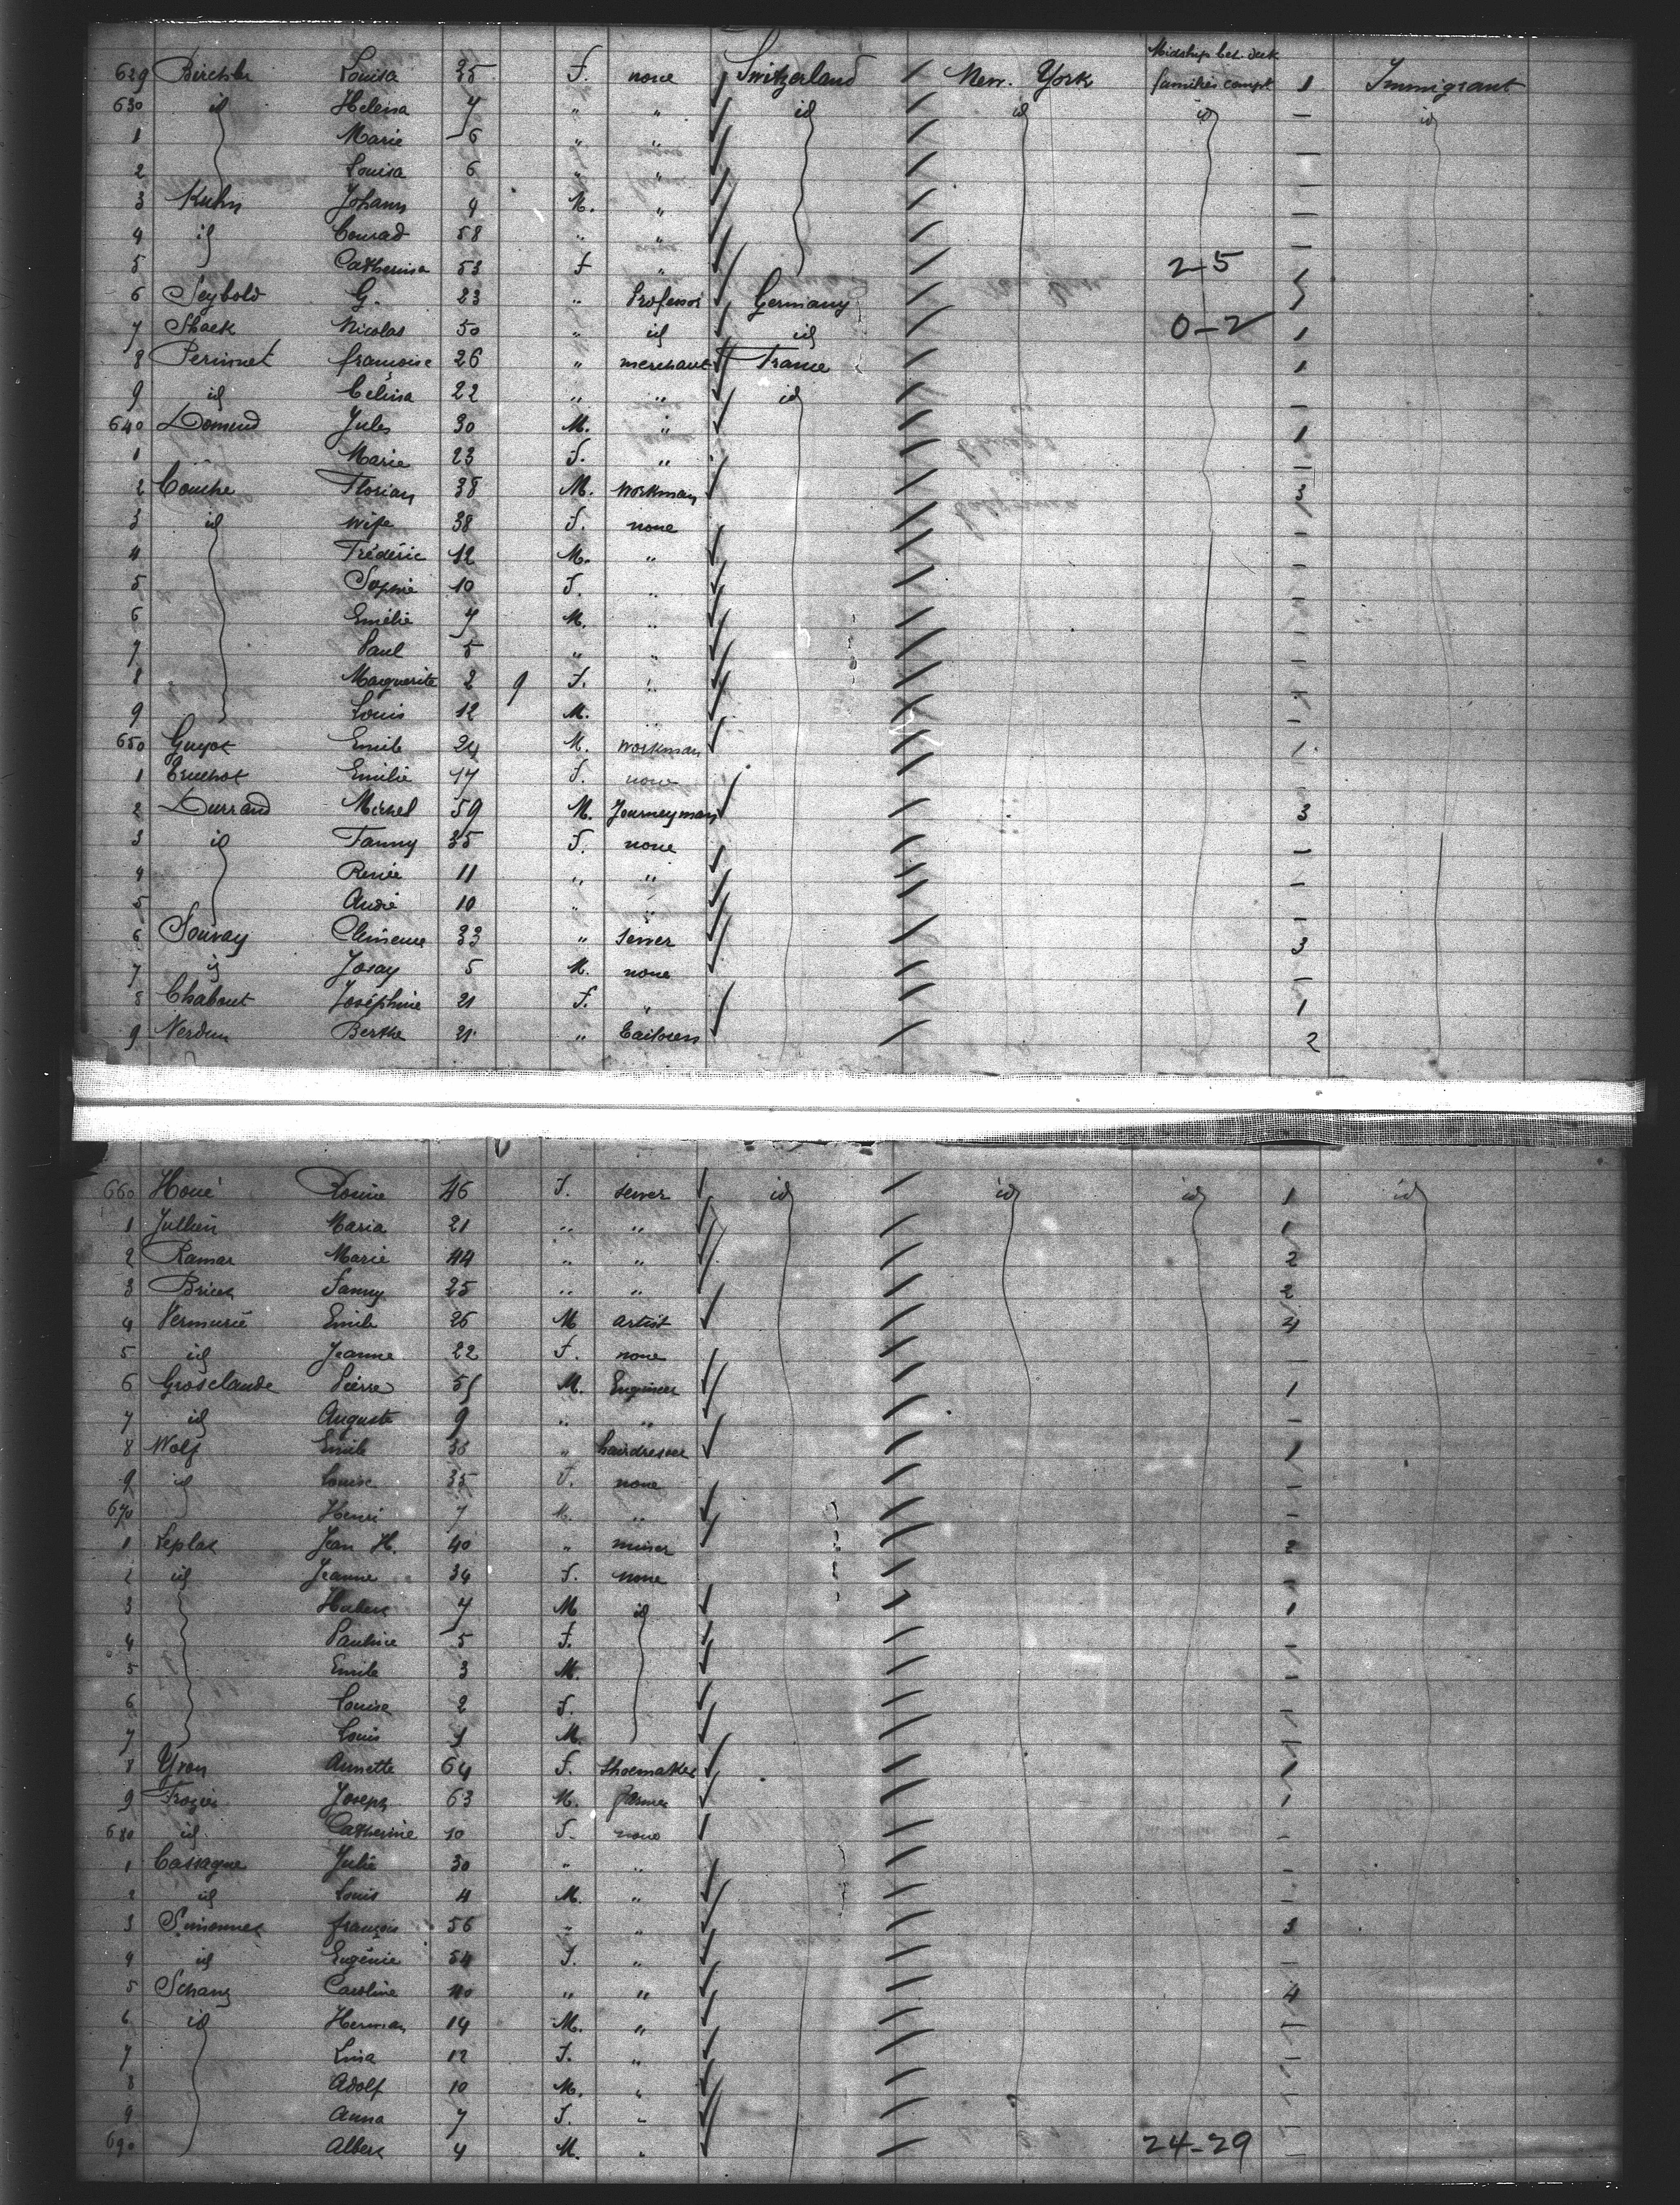 Midship bet. deck
629 Birchler Louisa 35 F. none Switzerland New York families compt 1 Immigrant
630 id Helena 7 " " id id id - id
1 Marie 6 " " -
2 Louisa 6 " " -
3 Kuhn Johann 9 M. " -
4 id Conrad 58 " " -
5 Catherina 53 F " 2-5
6 Seybold G. 23 " Professor Germany
7 Nicolas 50 " id id 0-2 1
8 Perinnet françoise 26 " merchant France 1
9 id Celina 22 " " id -
640 Jules 30 M. " 1
1 Marie 23 F. " -
2 Couche Florian 38 M. Workman 3
3 id wife 38 F. none -
4 Frédéric 12 M. " -
5 Sophie 10 F. " -
6 Emélie 7 M. " -
7 Paul 5 " " -
8 Marguerite 2 9 F. " -
9 Louis 12 M. " -
650 Guyot Emile 24 M. workman 1
1 Emilie 17 F. none
2 Durrand Michel 59 M. Journeyman 3
3 id Fanny 35 F. none -
4 Renée 11 " " -
5 10 " " -
6 Souvay Clémence 33 " Sewer 3
7 id 5 M. none -
8 Chabout Joséphine 21 F. " 1
9 Nerdun Berthe 21 " 2
660 Houé 46 F. sewer id id id 1 id
1 Jullien Maria 21 " " 1
2 Ramar Marie 44 " " 2
3 Fanny 25 " " 2
4 Emile 26 M artist 4
5 id Jeanne 22 F. none -
6 Grosclaude Pierre M. Engineer 1
7 id Auguste 9 " " -
8 Wolf Emile 36 " hairdresser 1
9 id Louise 35 F. none -
670 Henri 7 M. " -
1 Leplat Jean H. 40 " miner 2
2 id Jeanne 34 F. none -
3 Hubert 7 M id 1
4 Pauline 5 F. -
5 Emile 3 M. -
6 Louise 2 F. -
7 Louis M. -
8 Yvon Annette 64 F. Shoemaker 1
9 Joseph 63 M. farmer 1
680 id Catherine 10 F. none -
1 Cassagne Julie 30 " " -
2 id Louis 4 M. " -
3 Simonnet françois 56 " " 3
4 id Eugénie 54 F. " -
5 Schanz Caroline 40 " " 4
6 id Herman 14 M. " -
7 Lina 12 F. " -
8 Adolf 10 M. " -
9 Anna 7 F. " -
690 Albert 4 M. " 24-29 -